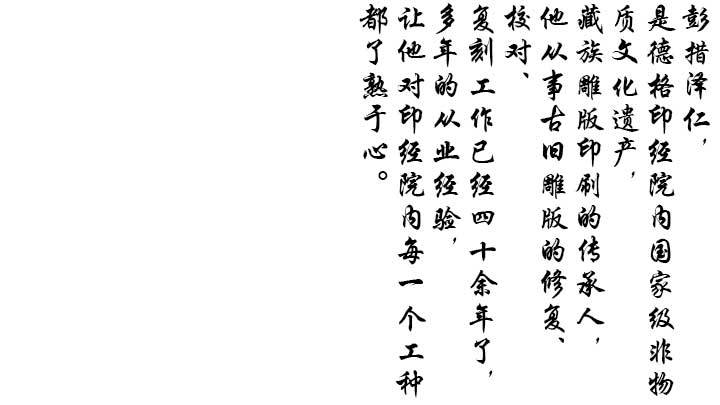 彭措泽仁，
是德格印经院内国家级非物
质文化遗产，
藏族雕版印刷的传承人，
他从事古旧雕版的修复、
校对、
复刻工作已经四十余年了，
多年的从业经验，
让他对印经院内每一个工种
都了熟于心。